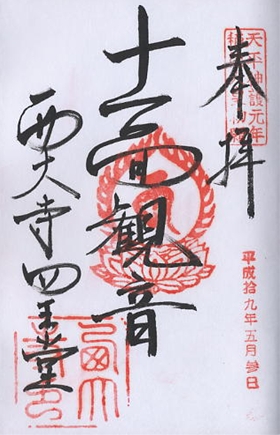 奉拝
天平神護元年
平成拾九年五月参日
十一面観音
西大寺四王堂